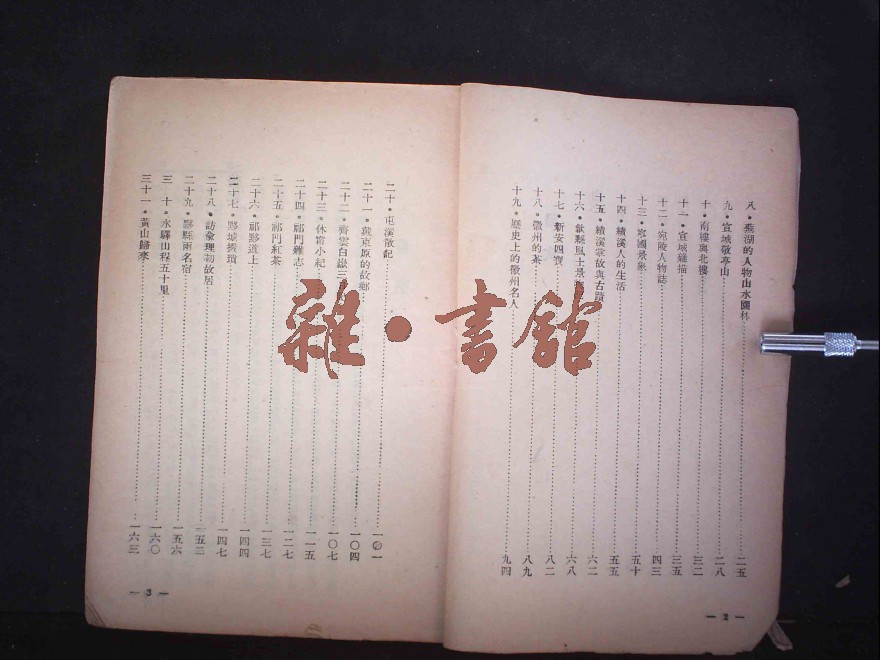 八·蕪湖的人物山水園林……二五
九·宣城敬亭山……二八
十·南樓與北樓……三二
十一·宣城雜描……三五
十二·宛陵人物誌……四三
十三·寧國景象……五十
十四·績溪人的生活……五五
十五·績溪掌故與古蹟……六二
十六·歙縣風土景……六八
十七·新安四寶……八二
十八·徽州的茶……八九
十九·歷史上的徽州名人……九四
— 2 —
二十·屯溪散記……一〇一
二十一·戴東原的故鄉……一〇四
二十二·齊雲白嶽三……一〇七
二十三·休甯小紀……一一五
二十四·祁門雜志……一二七
二十五·祁門紅茶……一三七
二十六·祁黟道上……一四四
二十七·黟城掇瑣……一四七
二十八·訪俞理初故居……一五二
二十九·黟縣兩名宿……一五六
三十·水驛山程五十里……一六〇
三十一·黃山歸來……一六三
— 3 —
雜·書館